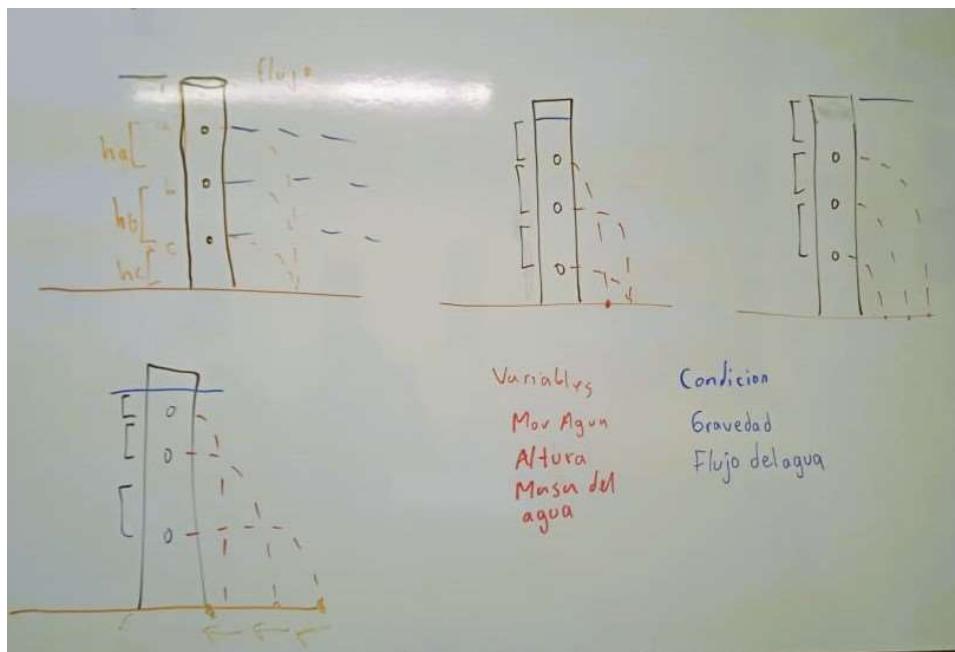 flujo
a
ha
b
hb
c
hc
Variables
Mov Agua
Altura
Masa del
agua
Condicion
Gravedad
Flujo del agua